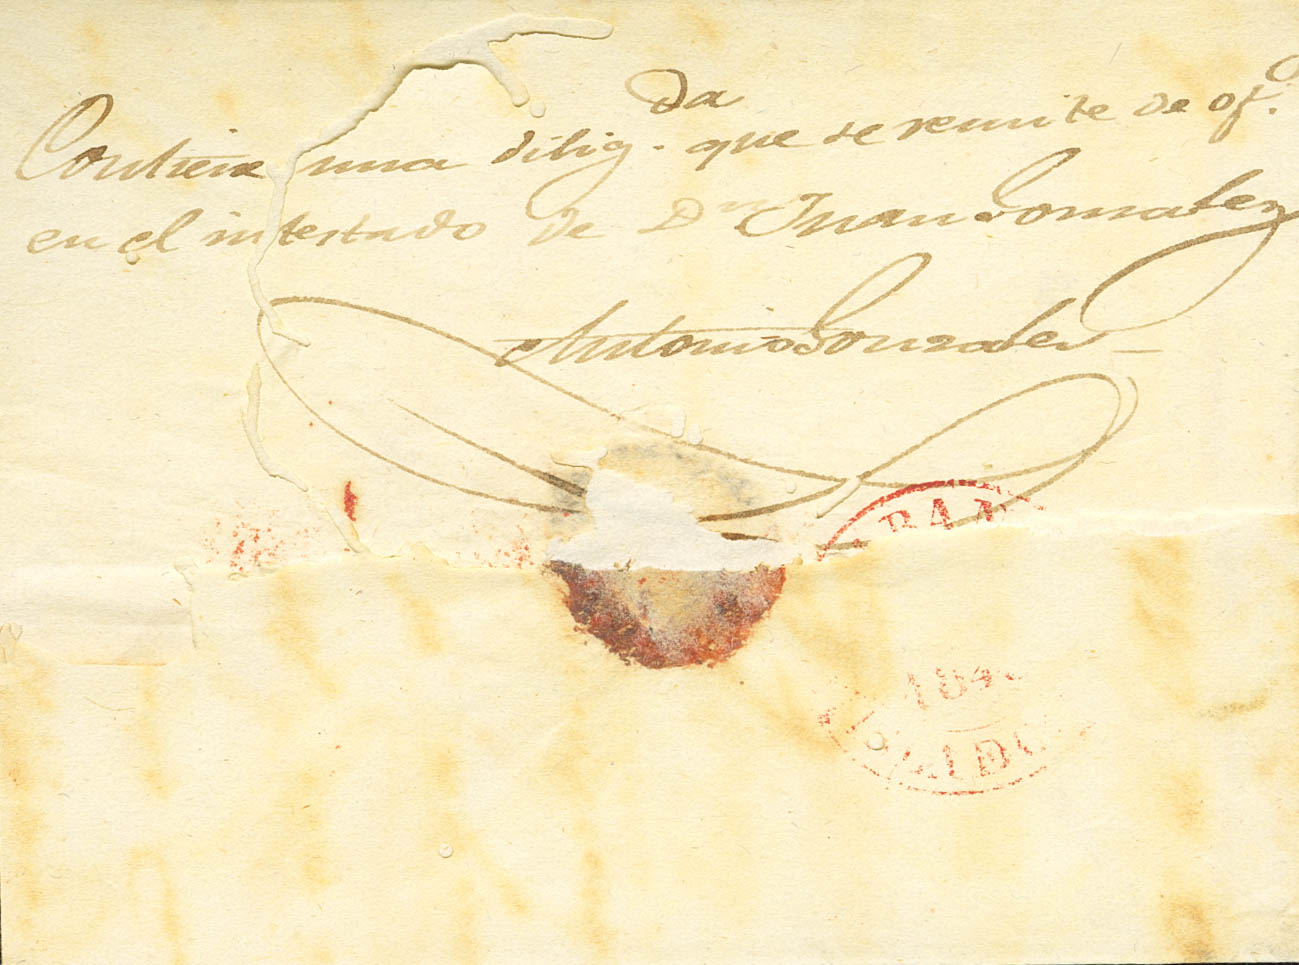 Contiene una dilig.da que se remite de ofo.
en el intestado de Dn Juan Gonzalez
Antonio Gonzalez
BAN
184
ISLADO